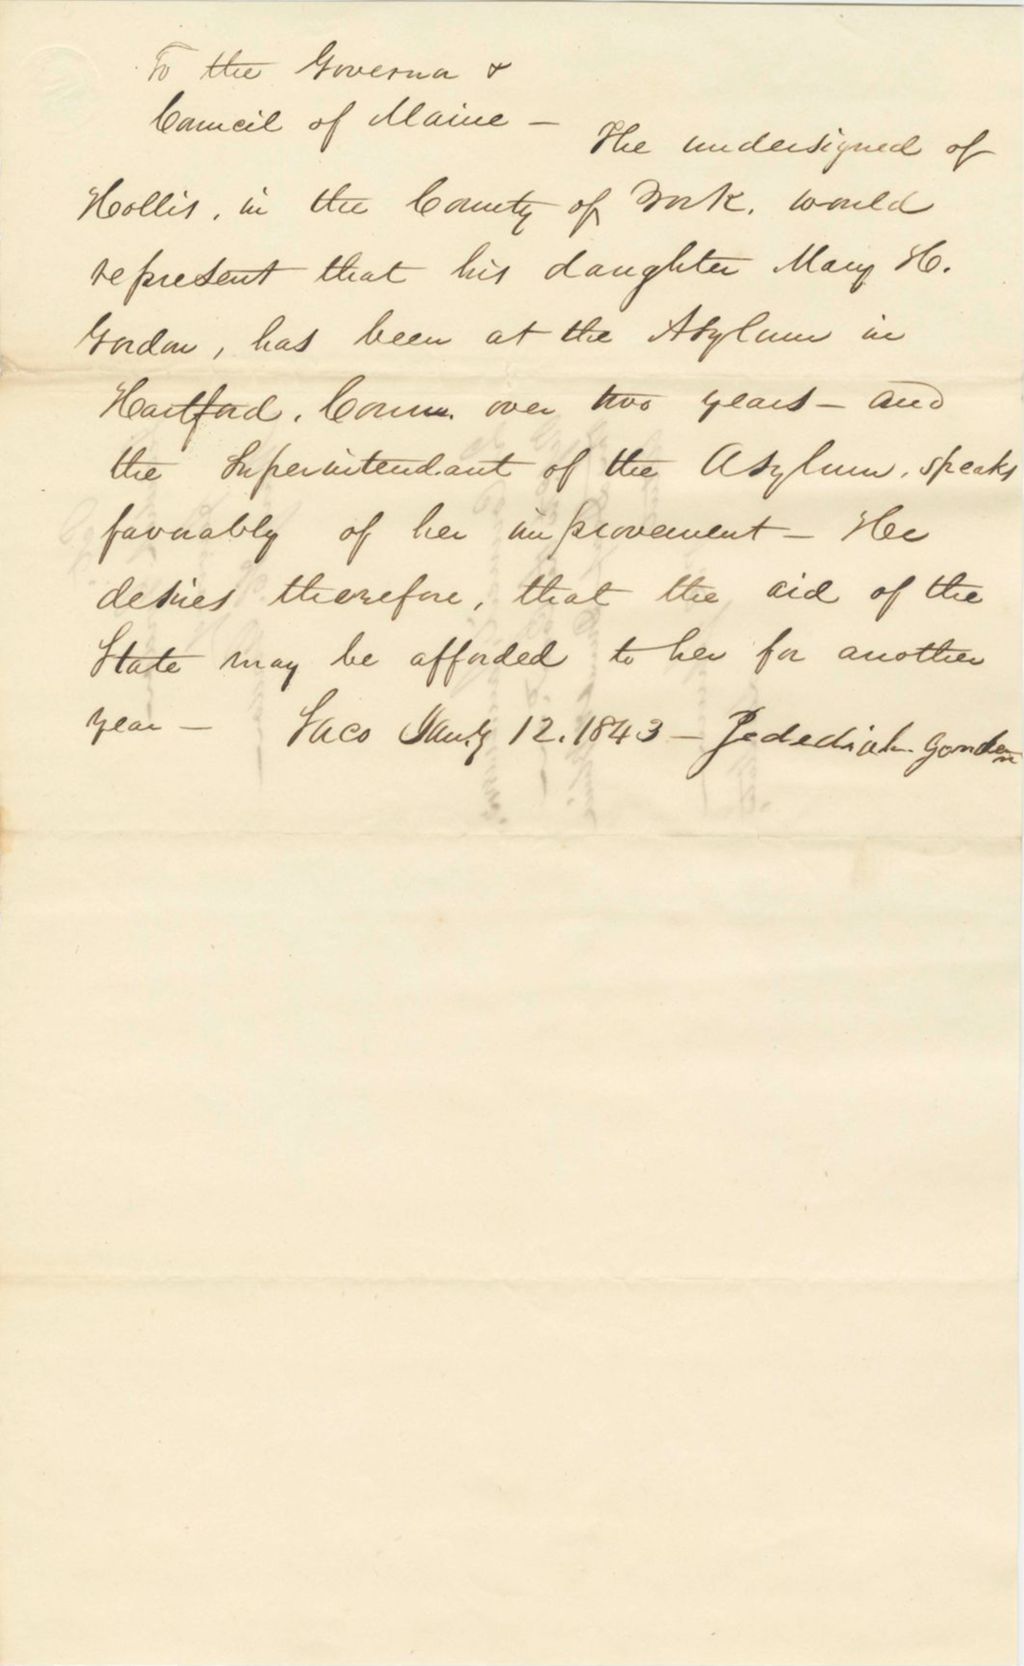 To the Governor &
Council of Maine —
The undersigned of
Hollis, in the County of York, would
represent that his daughter Mary H.
Gordon, has been at the Asylum in
Hartford, Conn. over two years — and
the Superintendant of the Asylum, speaks
favorably of her improvement — He
desires therefore, that the aid of the
State may be afforded to her for another
year — Saco Jany 12. 1843 — Jedediah Gorden